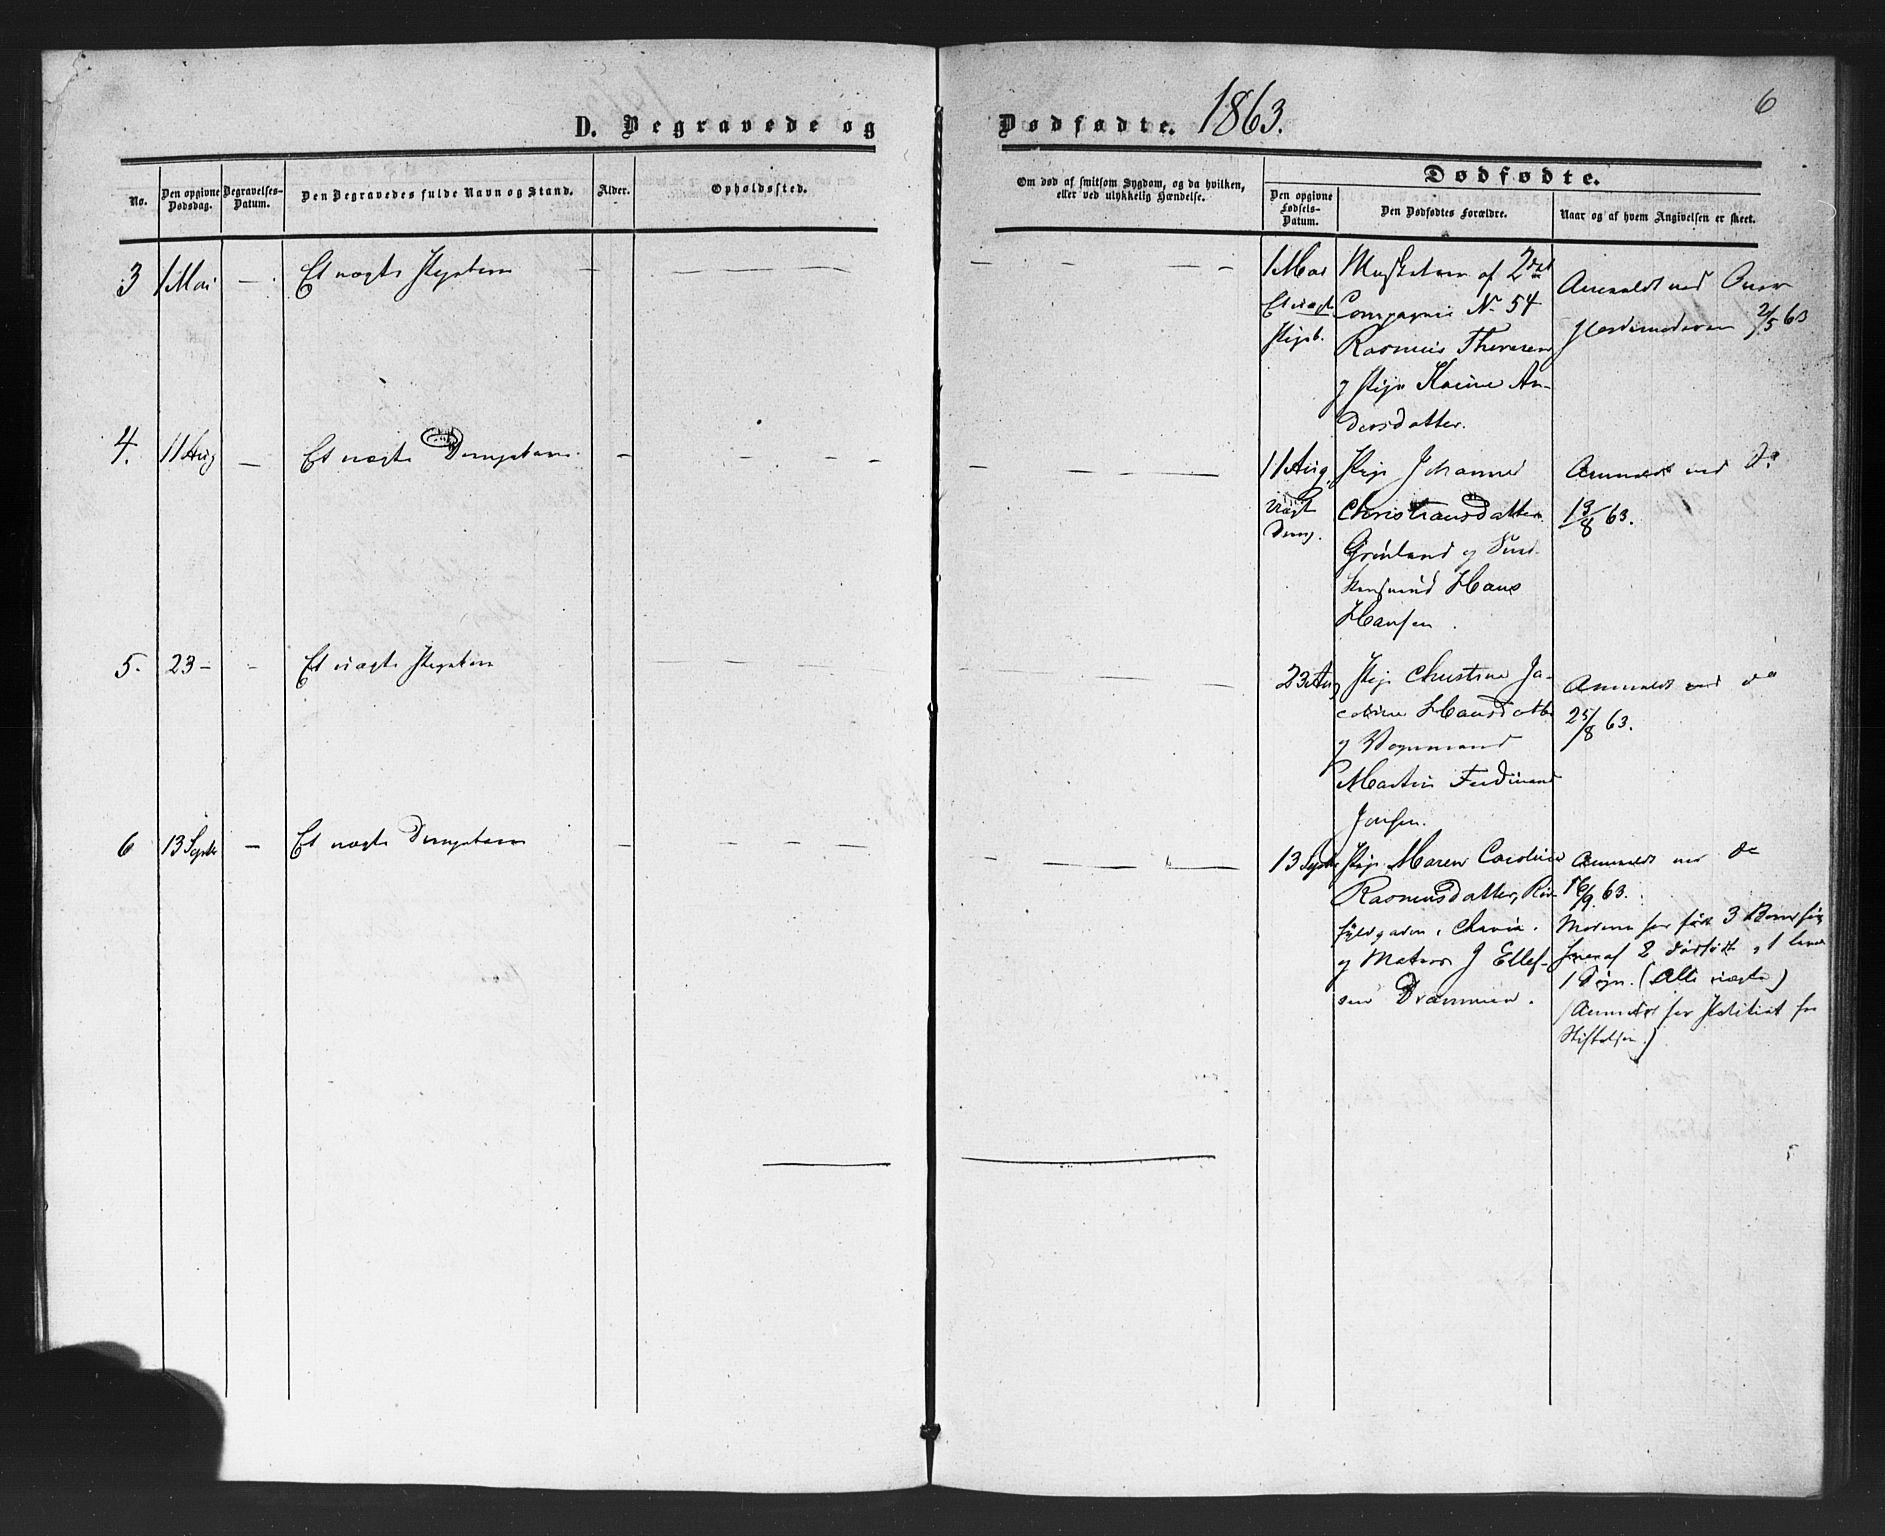 D. Begravede og
Dødfødte. 1863.
6
No.
Den opgivne Dødsdag.
Begravelses-Datum.
Den Begravedes fulde Navn og Stand.
Alder.
Opholdssted.
Om død af smitsom Sygdom, og da hvilken,
eller ved ulykkelig Hændelse.
Dødfødte.
Den opgivne Fødsels-Datum.
Den Dødfødtes Forældre.
Naar og af hvem Angivelsen er skeet.
3
1 Mai
Et uægte Pigebarn
1 Mai
Et uægt
Pigeb.
Musketeer af 2det
Compagnie No 54
Rasmus
og Pige Karine An-
dersdatter.
Anmeldt ved
Jordemoderen 2/5 63
4.
11 Aug
Et uægte Drengebarn.
11 Aug.
Uægt
Dreng.
Pige Johanne
Christiansdatter
Grønland og
Hans
Hansen.
Anmeldt ved Do
13/8 63.
5.
23 -
Et uægte Pigebarn
23 Aug
Pige Christine Ja-
cobine Hansdatter
og Vognmand
Martin Ferdinand
Jensen.
Anmeldt ved do
25/8 63.
6
13 Septbr
Et uægte Drengebarn
13 Septbr
Pige Maren Caroline
Rasmusdatter, Rød-
fyldgaden, Chania.
og Matros J Ellef-
sen Drammen.
Anmeldt ved do
16/9 63.
Moderen har født 3 Børn før
hvoraf 2 dødfødte, 1 levede
1 Døgn. (Alle uægte)
(Anmeldt for Politiet fra
Stiftelsen)